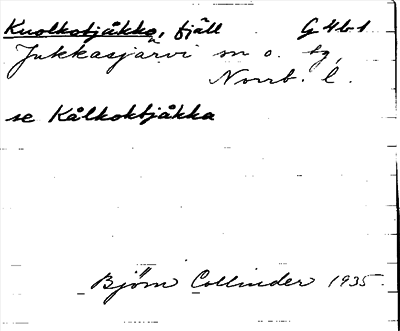 Kuolkotjåkko, fjäll G4b1
Jukkasjärvi sn o. tg,
Norrb. l.
se Kålkoktjåkka
Björn Collinder 1935.